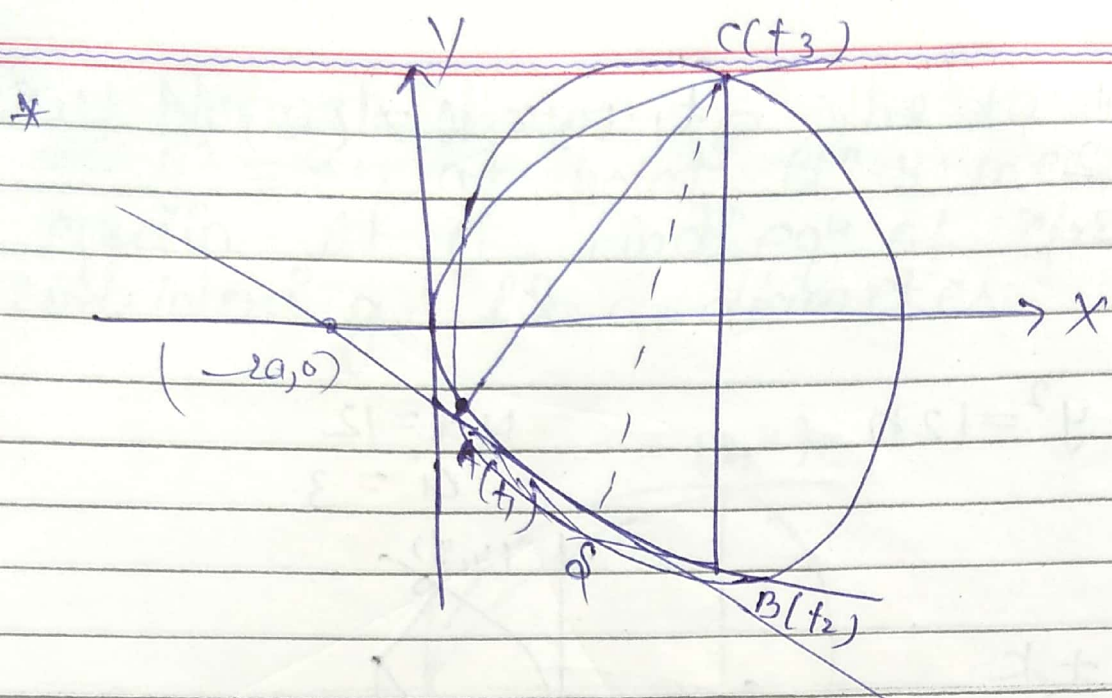 Y
C(t3)
*
X
(-2a,0)
A(t1)
S
B(t2)